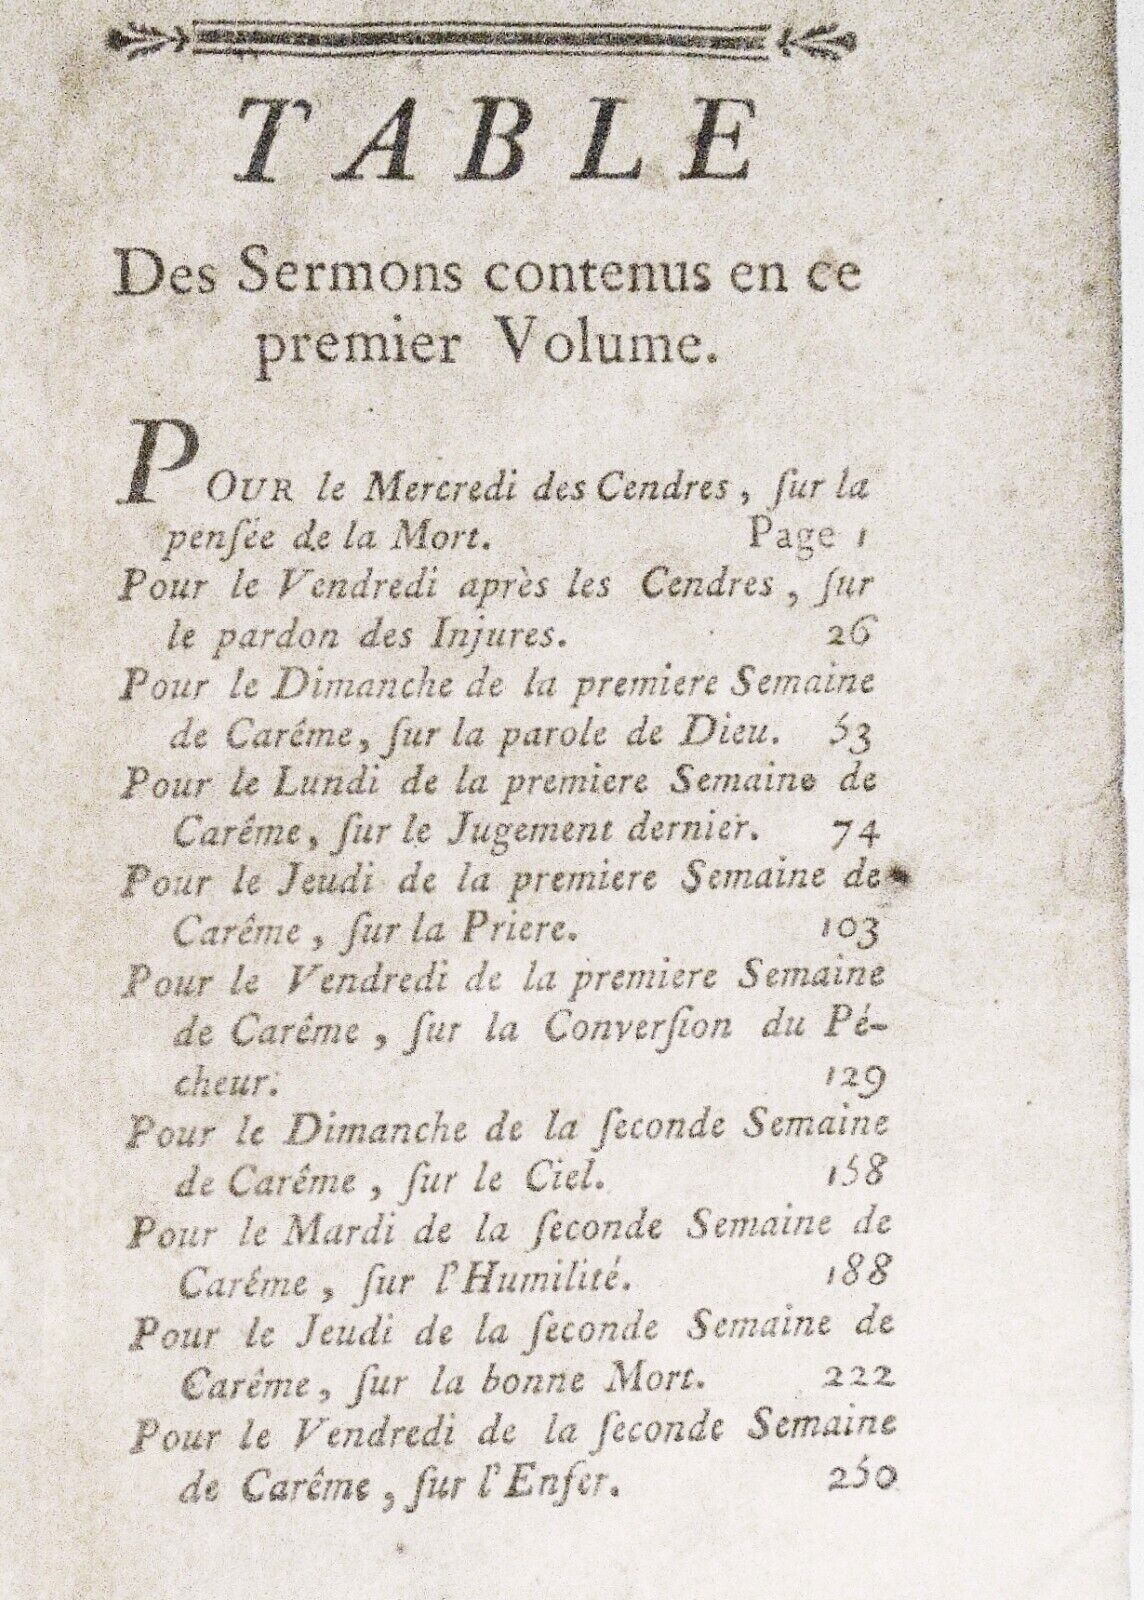 TABLE
Des Sermons contenus en ce
premier Volume.
POUR le Mercredi des Cendres, ſur la
penſée de la Mort. Page 1
Pour le Vendredi après les Cendres, ſur
le pardon des Injures. 26
Pour le Dimanche de la premiere Semaine
de Carême, ſur la parole de Dieu. 53
Pour le Lundi de la premiere Semaine de
Carême, ſur le Jugement dernier. 74
Pour le Jeudi de la premiere Semaine de
Carême, ſur la Priere. 103
Pour le Vendredi de la premiere Semaine
de Carême, ſur la Converſion du Pé-
cheur. 129
Pour le Dimanche de la ſeconde Semaine
de Carême, ſur le Ciel. 158
Pour le Mardi de la ſeconde Semaine de
Carême, ſur l'Humilité. 188
Pour le Jeudi de la ſeconde Semaine de
Carême, ſur la bonne Mort. 222
Pour le Vendredi de la ſeconde Semaine
de Carême, ſur l'Enfer. 250